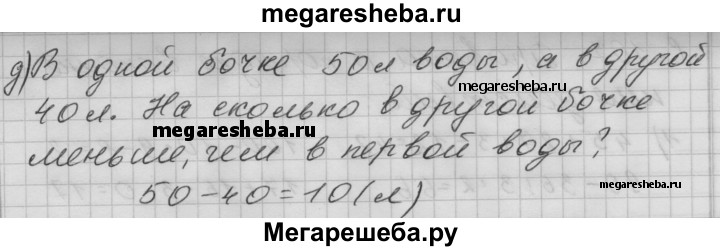 megaresheba.ru
д) В одной бочке 50 л воды, а в другой
megaresheba.ru
40 л. На сколько в другой бочке
megaresheba.ru
меньше, чем в первой воды?
50-40=10 (л)
megaresheba.ru
Мегарешеба.ру